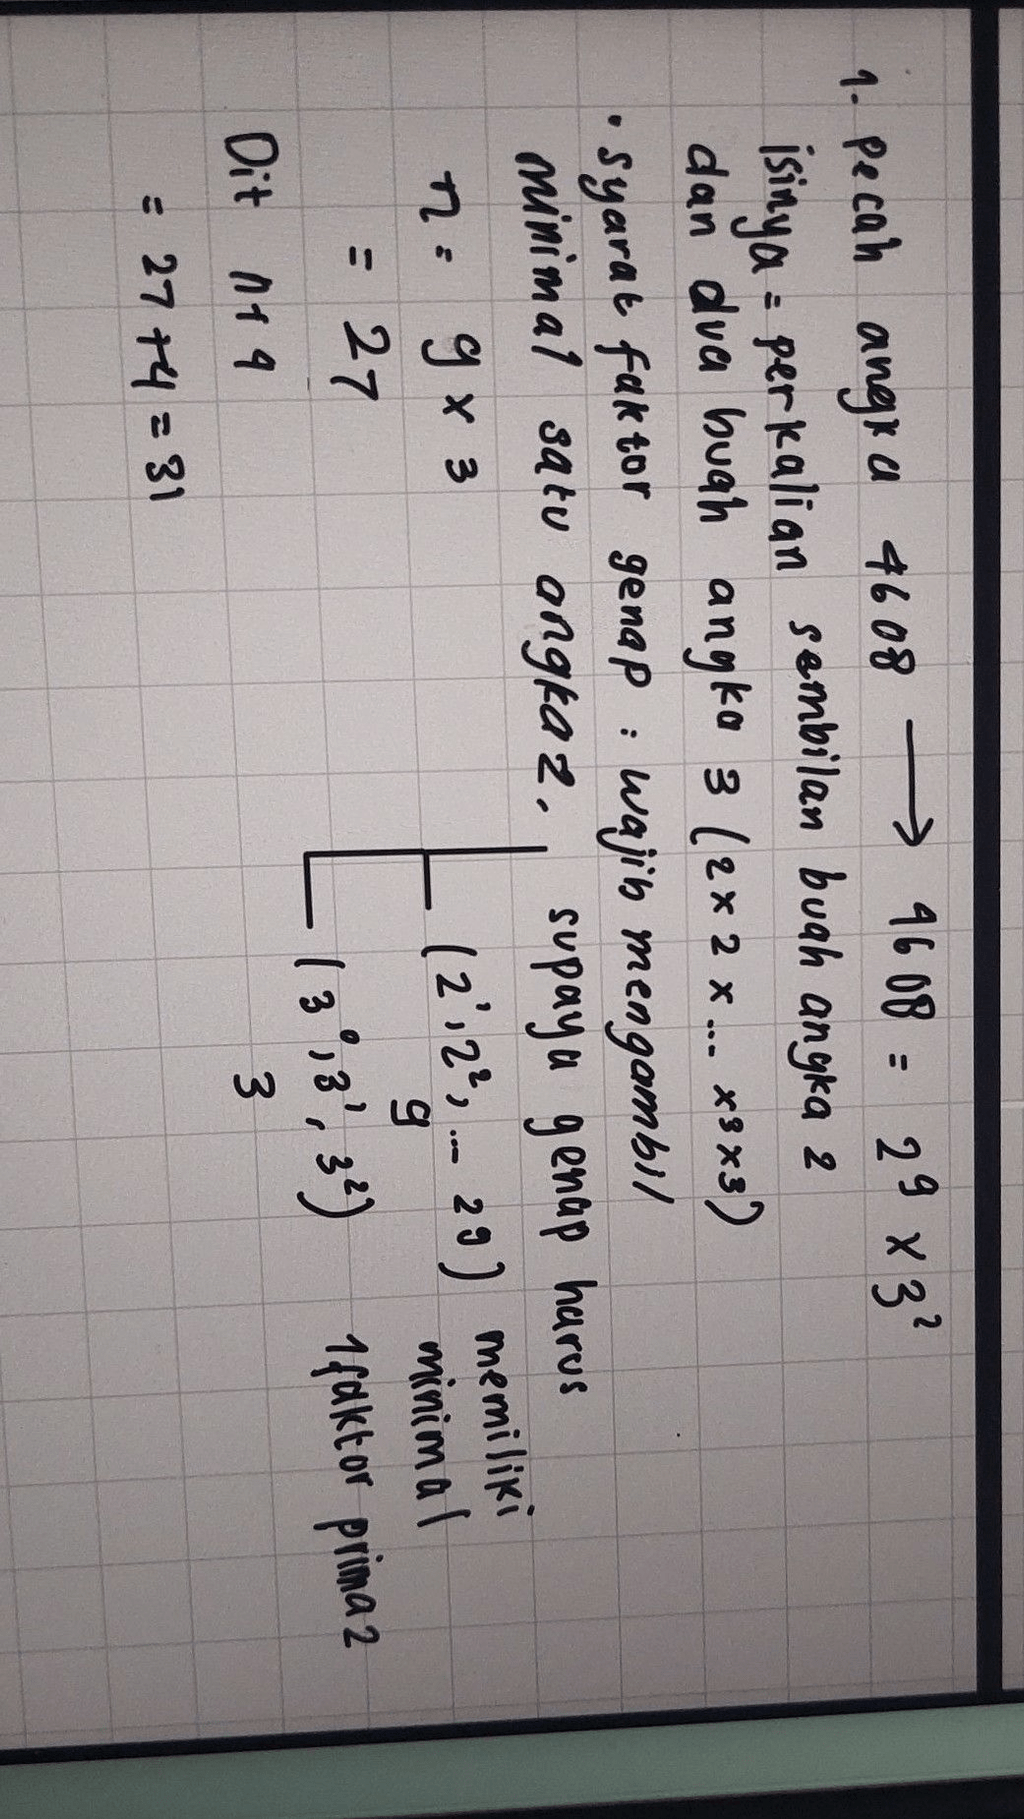 1. Pecah angka 4608 → 4608 = 2⁹ x 3²
isinya = perkalian sembilan buah angka 2
dan dua buah angka 3 (2 x 2 x ... x 3 x 3)
• syarat faktor genap : wajib mengambil
minimal satu angka 2.
supaya genap harus
memiliki
minimal
1 faktor prima 2
(2¹, 2², ... 2⁹)
9
(3⁰, 3¹, 3²)
3
n = 9 x 3
= 27
Dit n+4
= 27+4 = 31